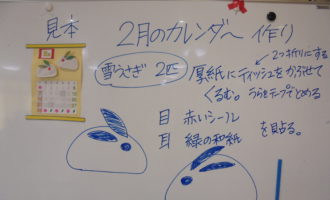 見本
2月のカレンダー 作り
2つ折りにする
雪うさぎ 2匹
厚紙にティッシュをかぶせて
くるむ。うらをテープでとめる
目 赤いシール
耳 緑の和紙 を貼る。